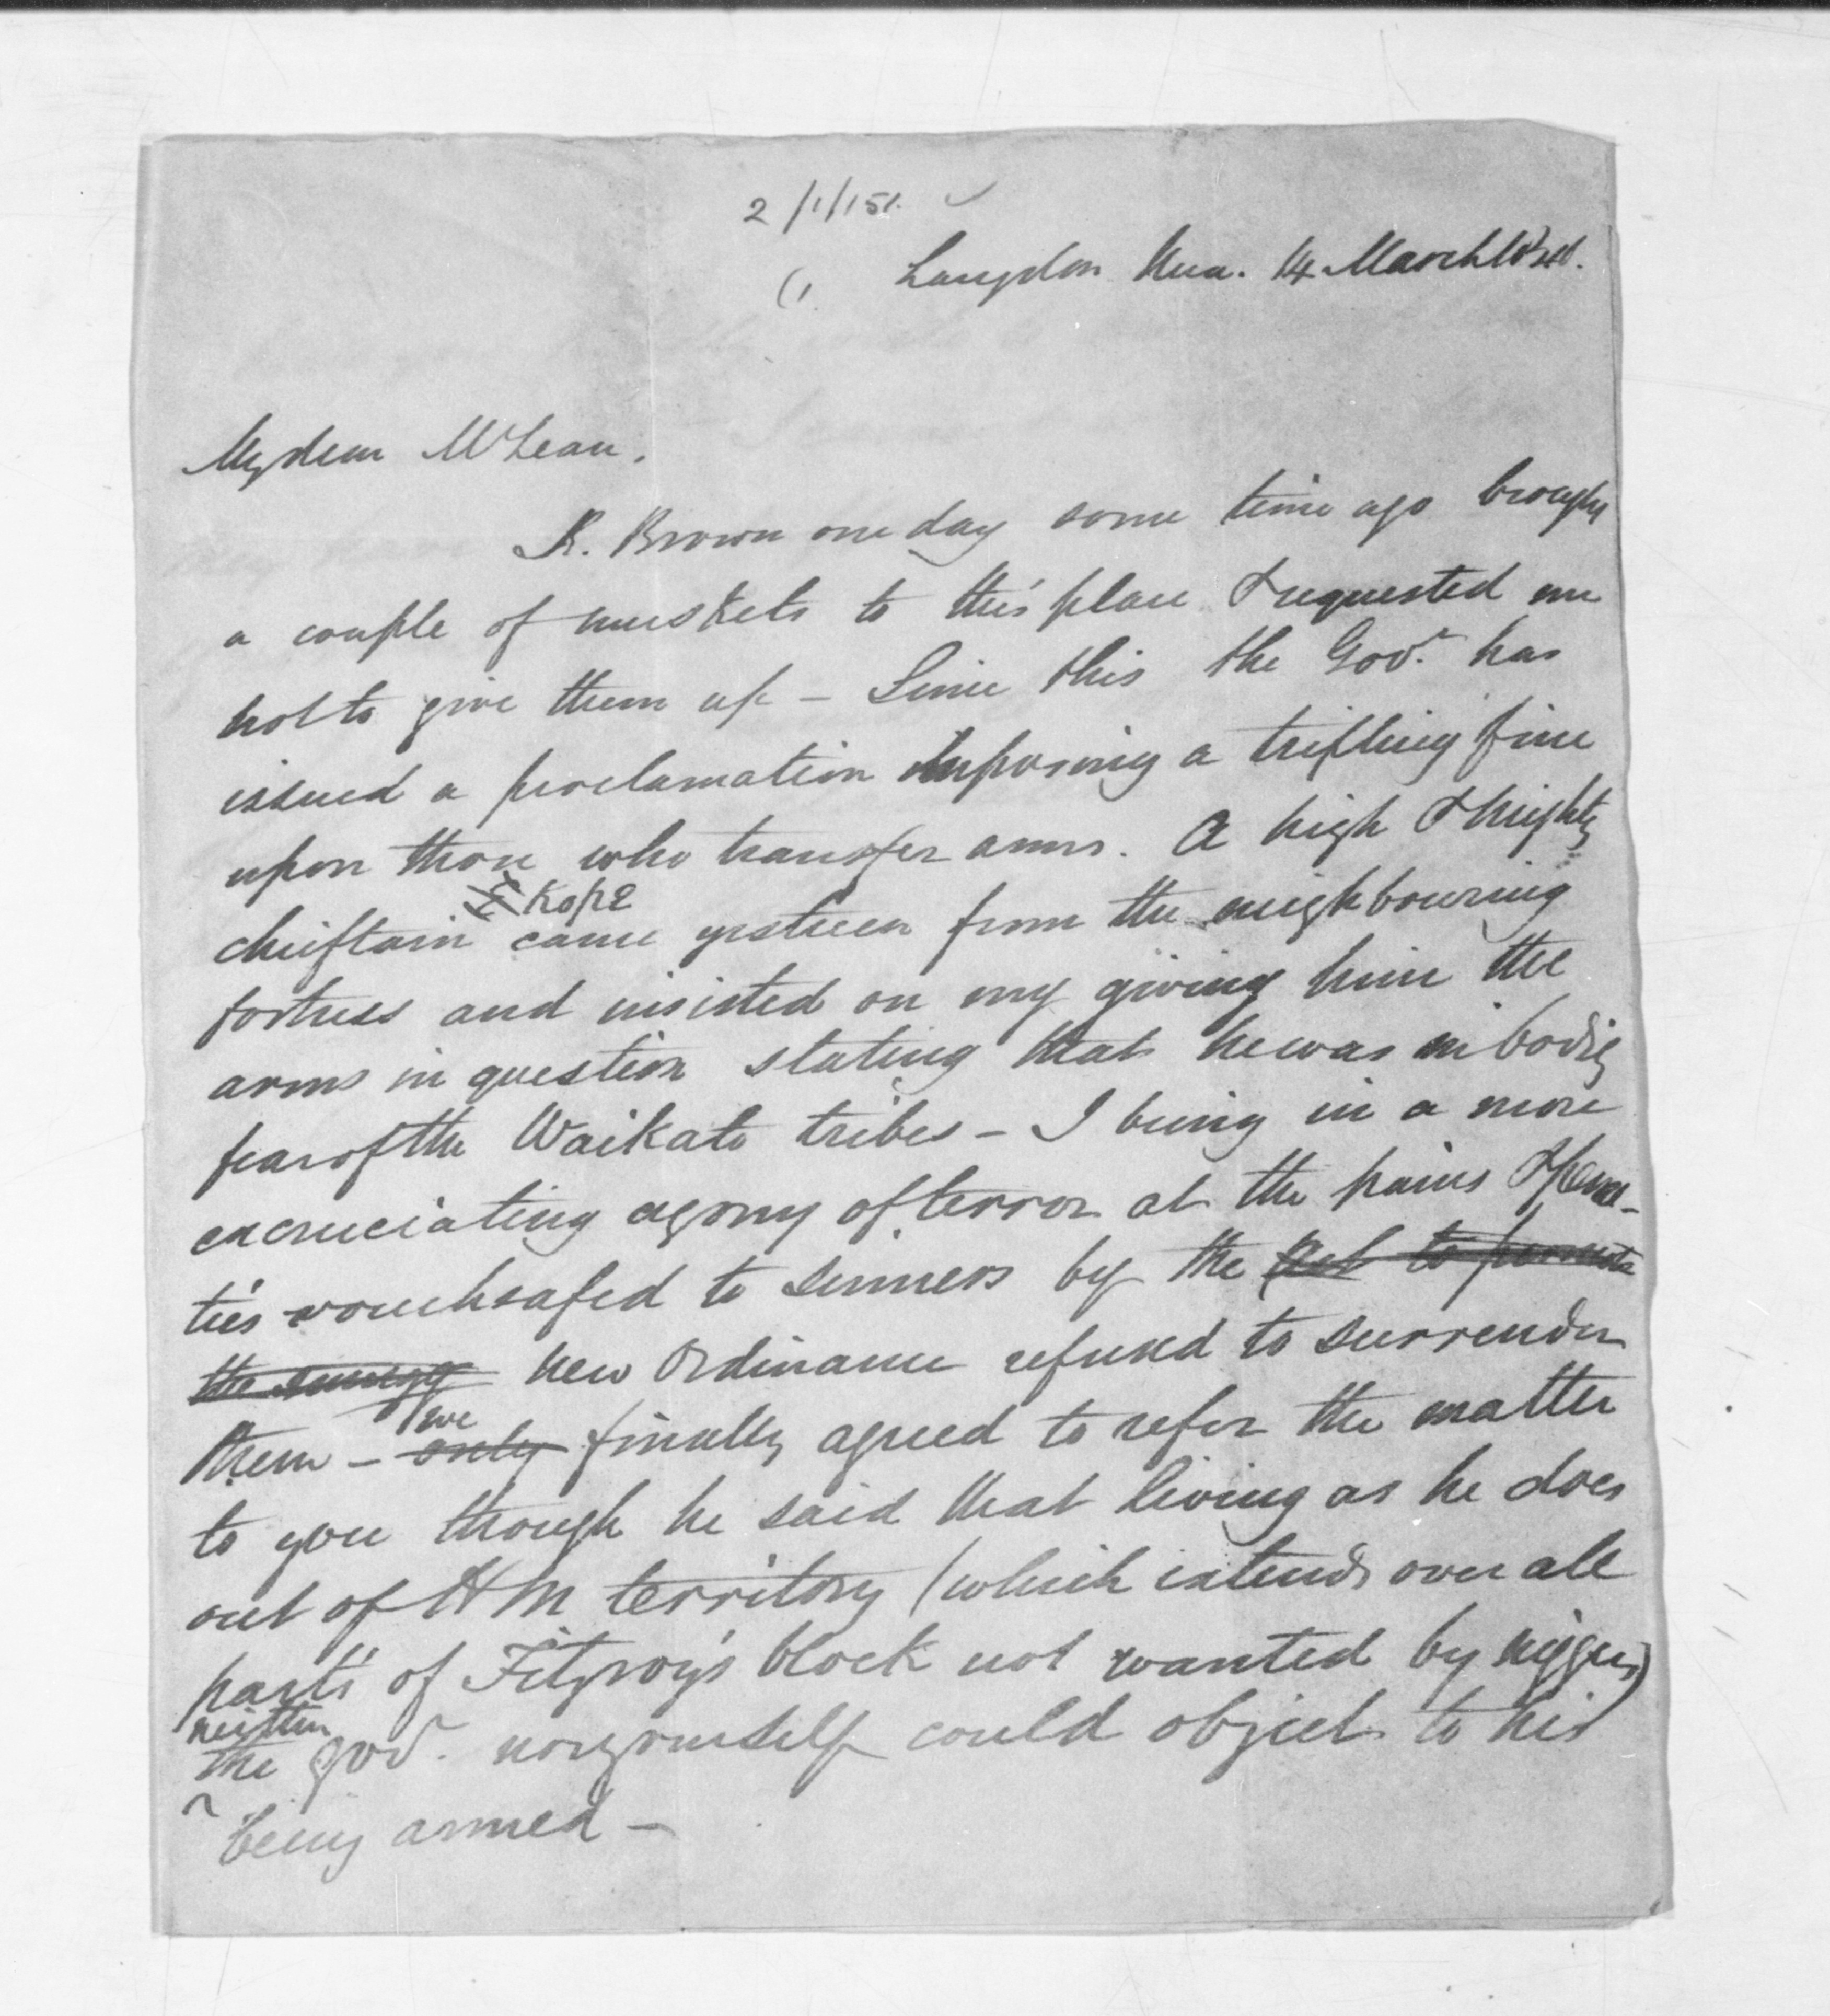 2/1/151.
Langdon Hua. 14 March 1846.
My dear McLean.
R. Brown one day some time ago brought
a couple of muskets to this place & requested me
not to give them up - Since this the Govr. has
issued a proclamation imposing a trifling fine
upon those who transfer arms. A high & mighty
Kope
chieftain came yestreen from the neighbouring
fortress and insisted on my giving him the
arms in question stating that he was in bodily
fear of the Waikato tribes - I being in a more
excruciating agony of terror at the pains & penal-
ties vouchsafed to sinners by the act to
the new Ordinance refused to surrender
we
them - only finally agreed to refer the matter
to you though he said that living as he does
out of HM territory (which extends over all
parts of Fitzroy's block not wanted by niggers)
neither
the govr. nor yourself could object to his
being armed -